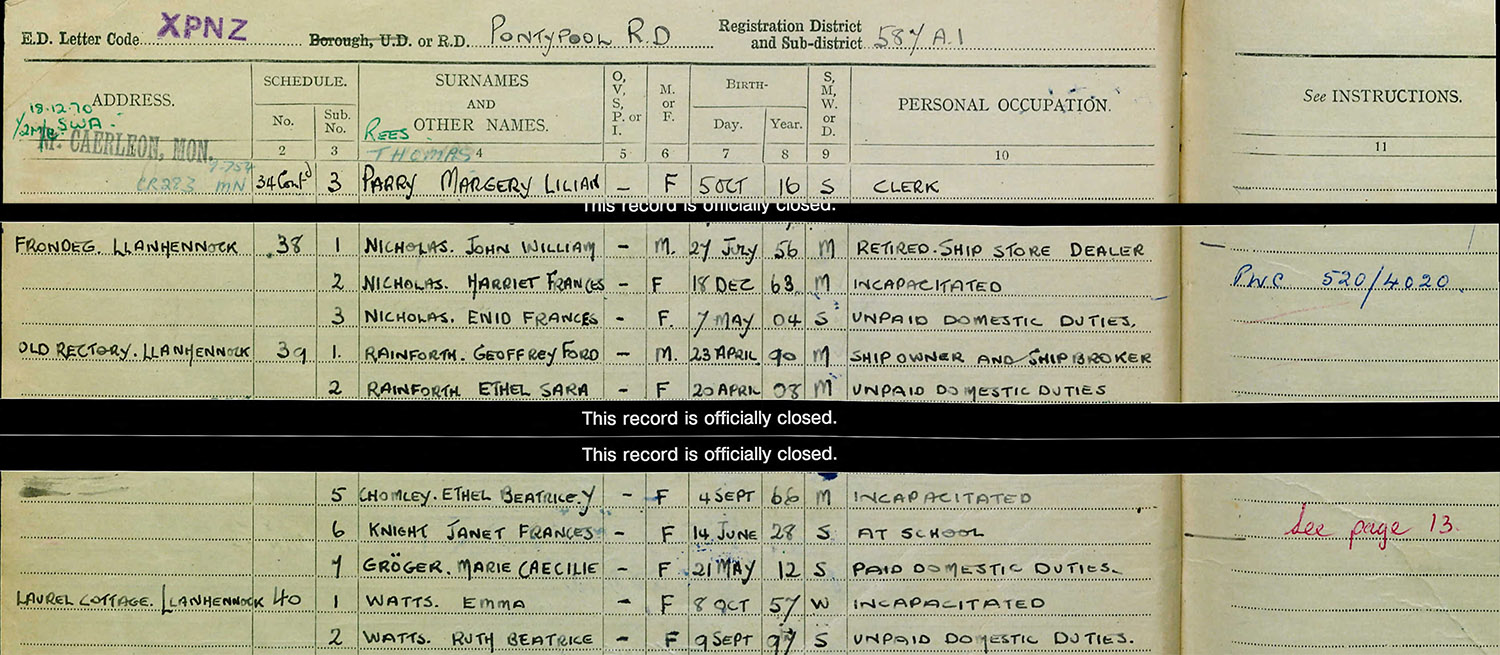 E.D. Letter Code XPNZ Borough, U.D. or R.D. PONTYPOOL R.D Registration District and Sub-district 587 A.1
ADDRESS. SCHEDULE. SURNAMES AND OTHER NAMES. O, V, S, P. or I. M. or F. BIRTH- S, M, W. or D. PERSONAL OCCUPATION. See INSTRUCTIONS.
No. Sub. No. Day. Year.
18.12.70
SWA.
CAERLEON, MON.
CR283 MN
REES
THOMAS
2 3 4 5 6 7 8 9 10 11
34 Contd 3 PARRY MARGERY LILIAN – F 5 OCT 16 S CLERK
This record is officially closed.
FRONDEG. LLANHENNOCK 38 1 NICHOLAS. JOHN WILLIAM – M. 27 JULY 56 M RETIRED. SHIP STORE DEALER
2 NICHOLAS. HARRIET FRANCES – F 18 DEC 63 M INCAPACITATED PWC 520/4020.
3 NICHOLAS. ENID FRANCES – F. 7 MAY 04 S UNPAID DOMESTIC DUTIES.
OLD RECTORY. LLANHENNOCK 39 1. RAINFORTH. GEOFFREY FORD – M. 23 APRIL 90 M SHIP OWNER AND SHIPBROKER
2 RAINFORTH ETHEL SARA – F 20 APRIL 08 M UNPAID DOMESTIC DUTIES
This record is officially closed.
This record is officially closed.
5 CHOMLEY. ETHEL BEATRICE. Y – F 4 SEPT 66 M INCAPACITATED
6 KNIGHT JANET FRANCES – F 14 JUNE 28 S AT SCHOOL See page 13.
7 GRÖGER. MARIE CAECILIE – F 21 MAY 12 S PAID DOMESTIC DUTIES.
LAUREL COTTAGE. LLANHENNOCK 40 1 WATTS. EMMA – F 8 OCT 57 W INCAPACITATED
2 WATTS. RUTH BEATRICE – F 9 SEPT 97 S UNPAID DOMESTIC DUTIES.